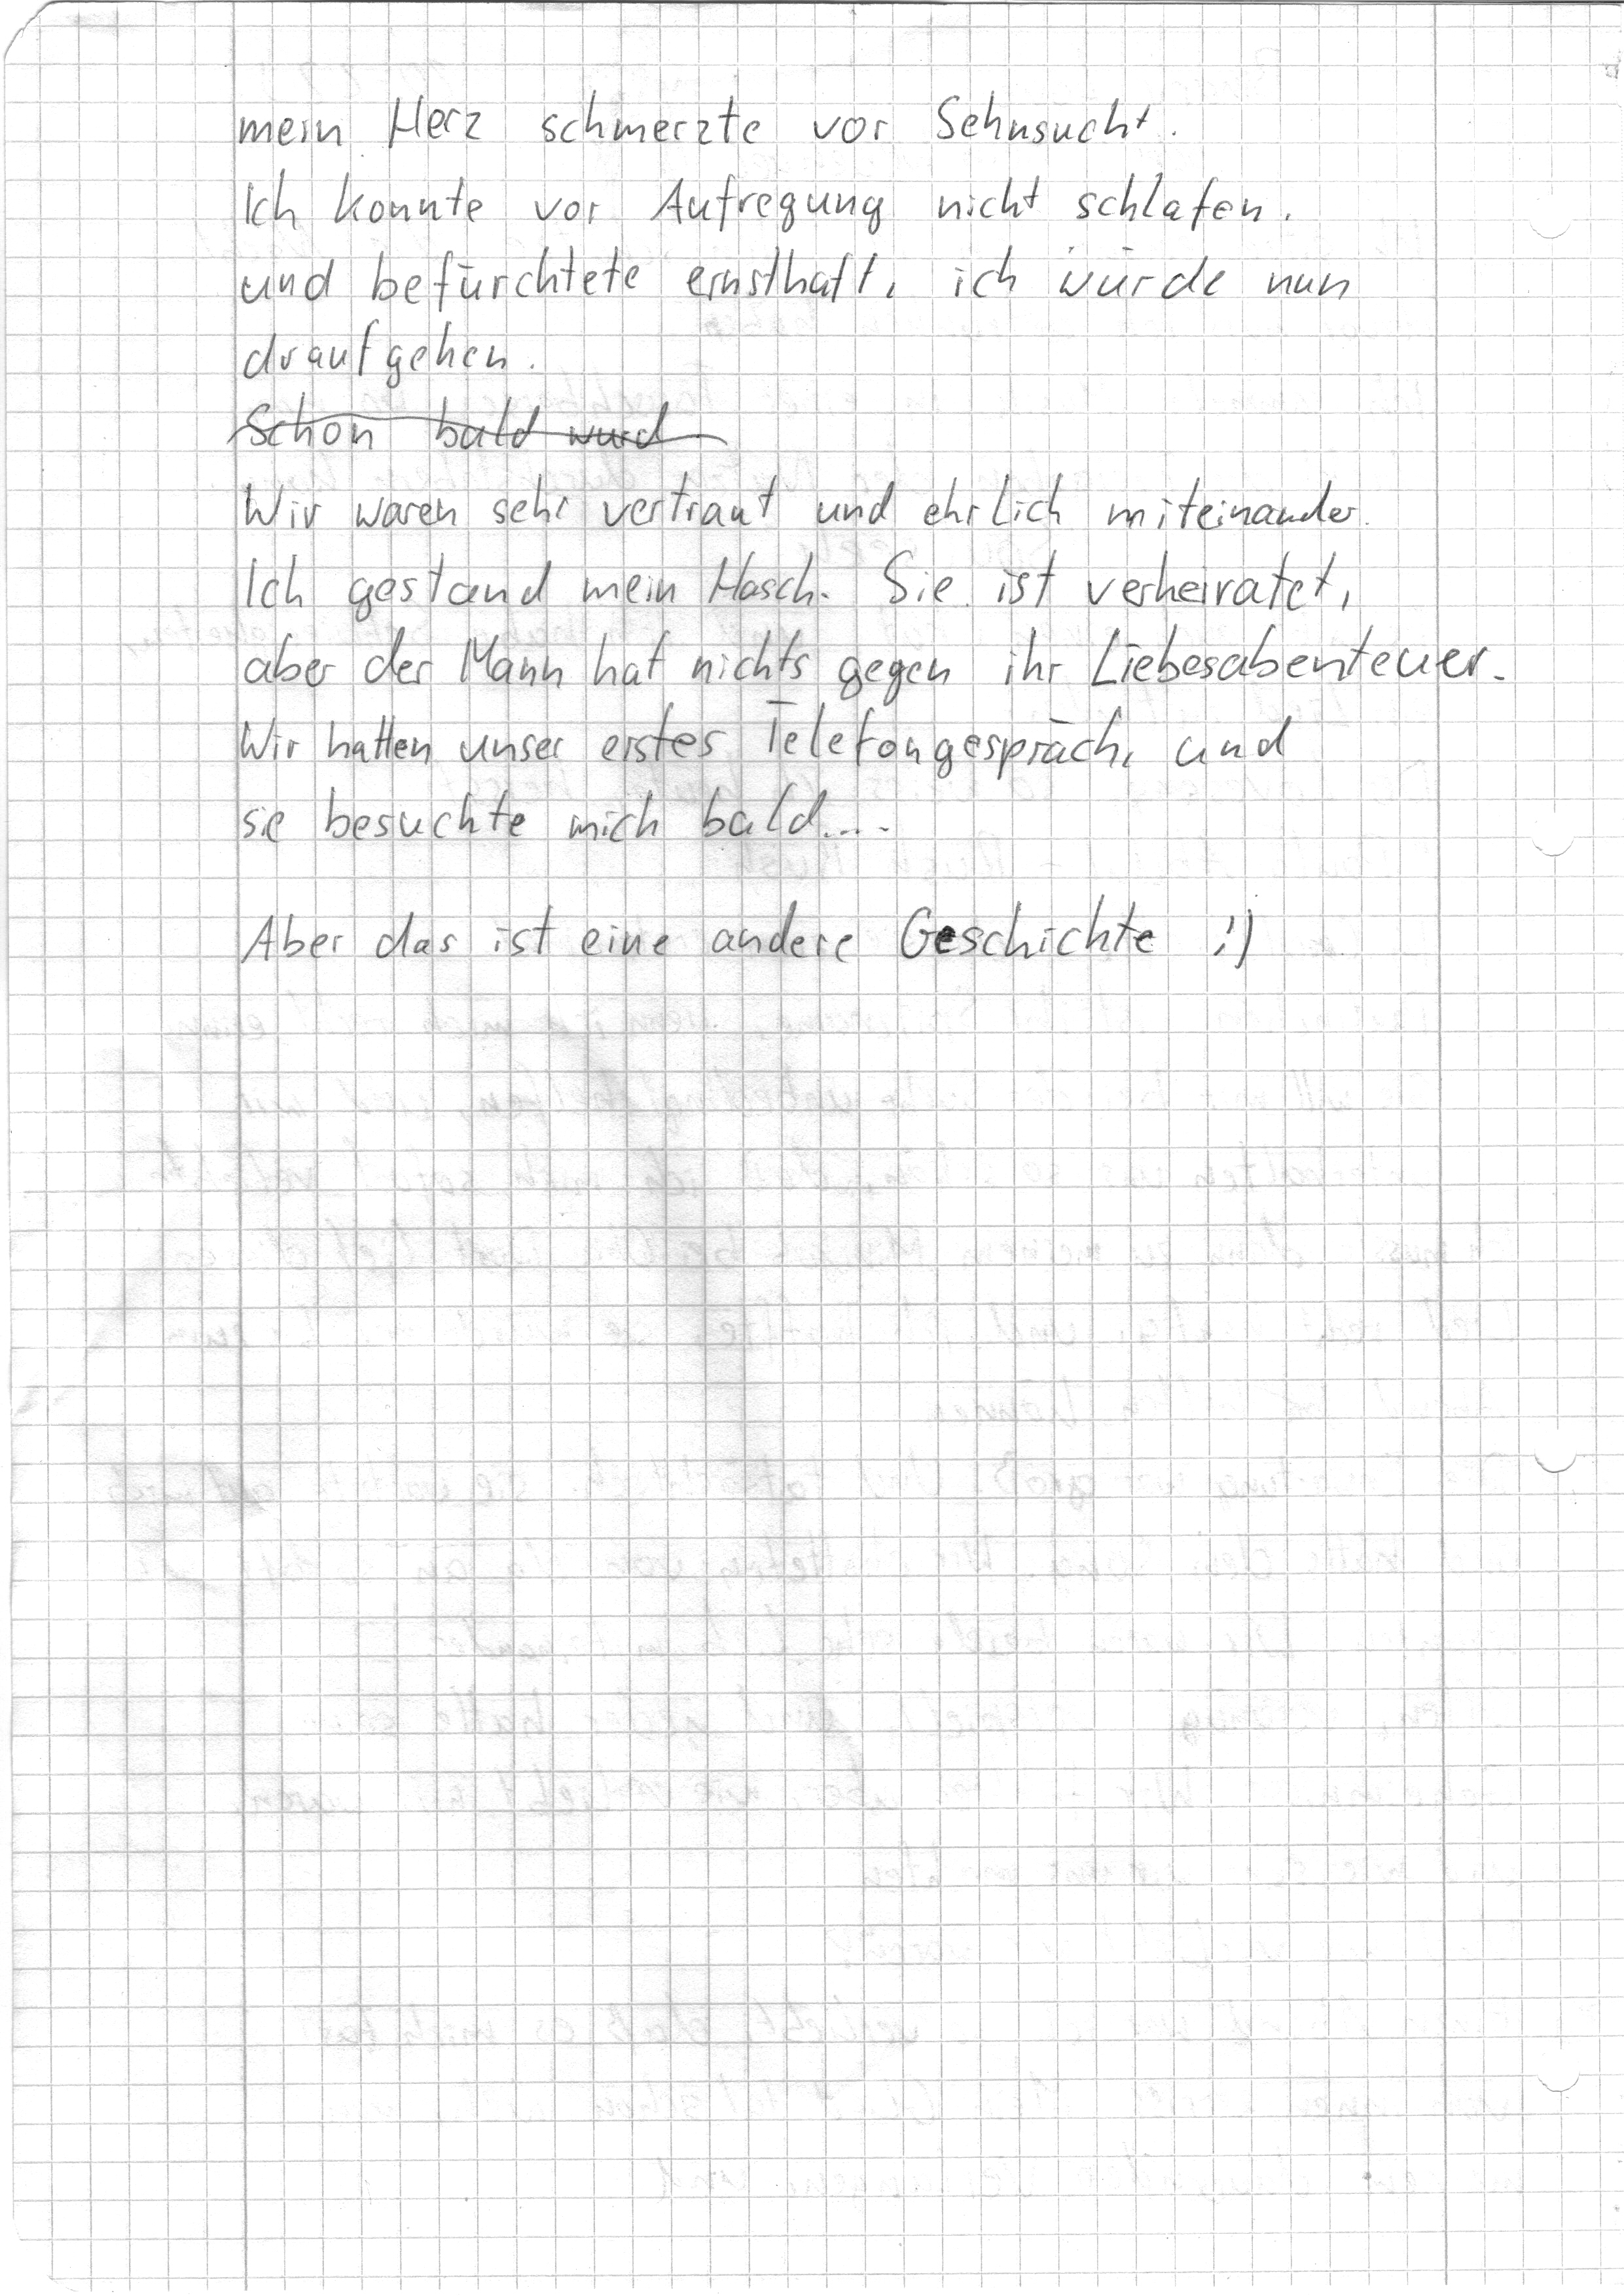 mein Herz schmerzte vor Sehnsucht.
Ich konnte vor Aufregung nicht schlafen.
und befürchtete ernsthaft, ich würde nun
draufgehen.
Schon bald wurd
Wir waren sehr vertraut und ehrlich miteinander.
Ich gestand mein Hasch. Sie ist verheiratet,
aber der Mann hat nichts gegen ihr Liebesabenteuer.
Wir hatten unser erstes Telefongespräch, und
sie besuchte mich bald....
Aber das ist eine andere Geschichte ;)